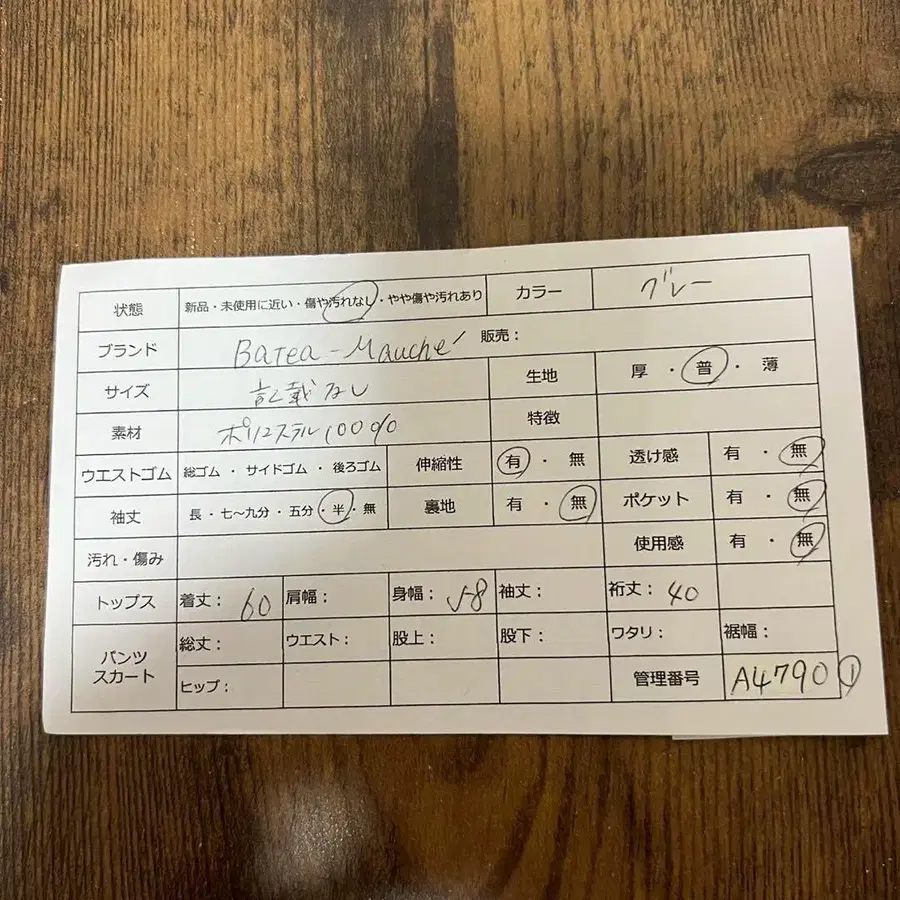 状態 新品・未使用に近い・傷や汚れなし・やや傷や汚れあり カラー グレー
ブランド Batea-Mauche 販売：
サイズ 記載なし 生地 厚・普・薄
素材 ポリエステル100% 特徴
ウエストゴム 総ゴム・サイドゴム・後ろゴム 伸縮性 有・無 透け感 有・無
袖丈 長・七〜九分・五分・半・無 裏地 有・無 ポケット 有・無
汚れ・傷み 使用感 有・無
トップス 着丈：60 肩幅： 身幅：58 袖丈： 裄丈：40
パンツ スカート 総丈： ウエスト： 股上： 股下： ワタリ： 裾幅：
ヒップ： 管理番号 A4790①